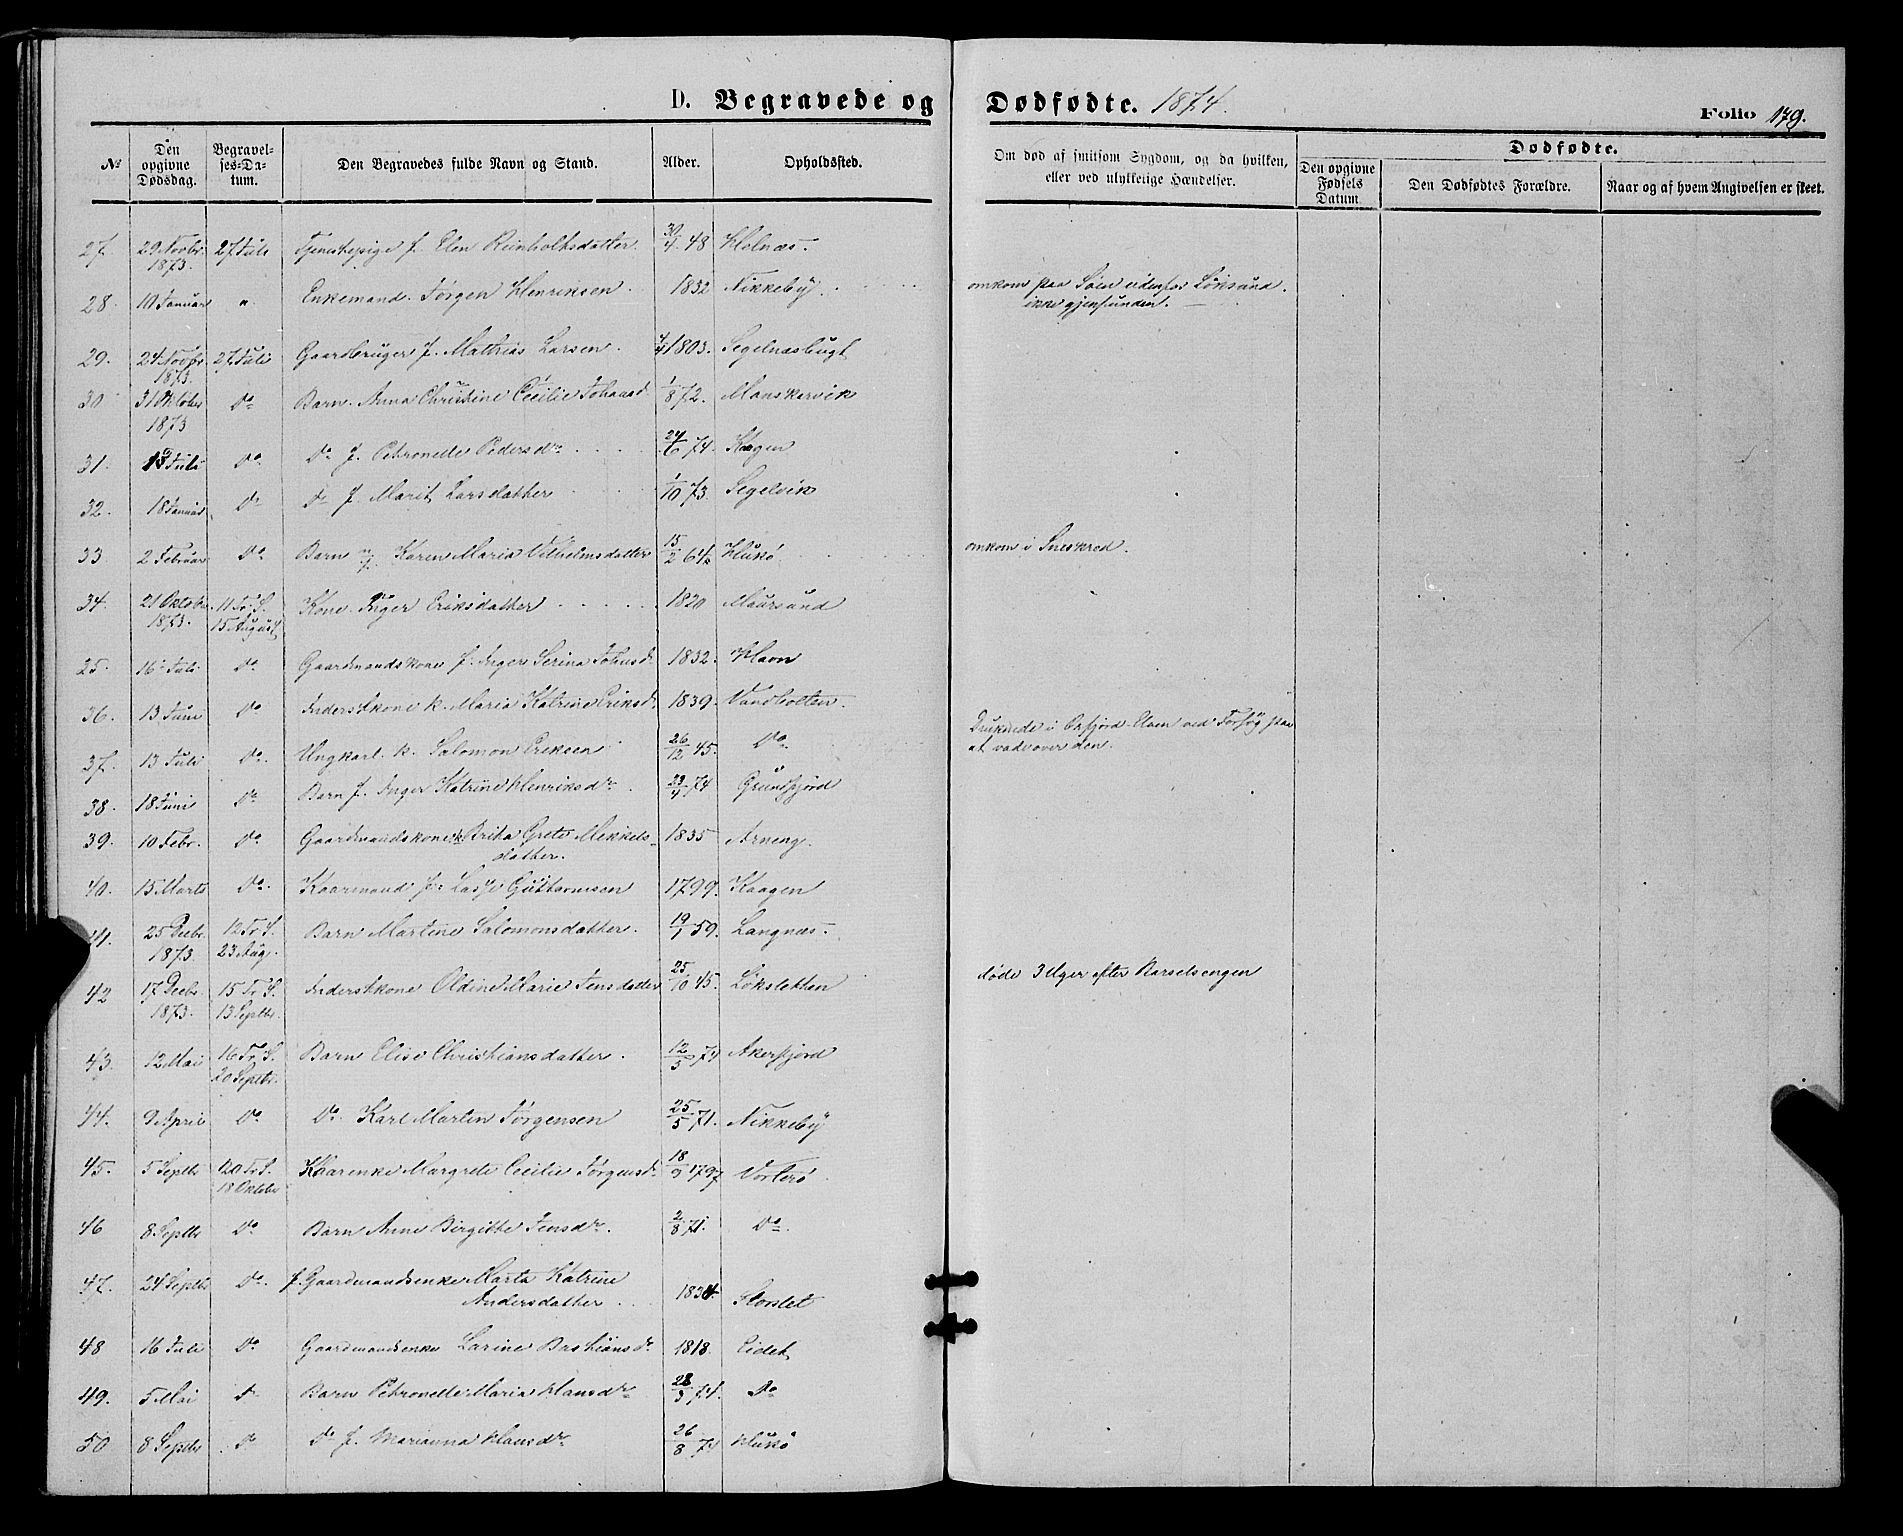 D. Begravede og Dødfødte. 1874.
Folio 179.
№ Den opgivne Dødsdag. Begravelses-Datum. Den Begravedes fulde Navn og Stand. Alder. Opholdssted. Om død af smitsom Sygdom, og da hvilken, eller ved ulykkelige Hændelser. Dødfødte. Den opgivne Fødsels Datum Den Dødfødtes Forældre. Naar og af hvem Angivelsen er skeet.
27. 29 Novbr. 1873. 27 Juli Tjenestepige f. Elen Reinholtsdatter. 30/4 48 Helnæs.
28. 10 Januar " Enkemand. Jørgen Henriksen. 1832 Nikkeby. omkom paa Søen udenfor Løksund. ikke gjenfunden.
29. 24 Novbr. 1873. 27 Juli Gaardbruger f. Mathias Larsen. 1803. Segelnæsbugt
30 31 Oktober 1873 Do Barn. Anna Christine Cecilie Johansd. 1/8 72. Manskarvik
31. Juli Do Do f. Petronelle Pedersdr. 24/6 74. Kagen
32. 18 Januar Do Do f. Marit Larsdatter 1/10 73. Segelvik
33 2 Februar Do Barn Karen Maria Vilhelmsdatter 15/2 64 Hukø omkom i Sneskred.
34. 21 Oktobr. 1873. 11 Tr. S. 15 August Kone. Inger Eriksdatter 1820 Maursund
25. 16 Juli Do Gaardmandskone f. Inger Serina Johnsd. 1832. Havn
36. 13 Juni Do Inderstkone k. Maria Katrine Eriksd. 1839. Vandbolten.
37. 13 Juli Do. Ungkarl. k. Salomon Eriksen 26/12 45. Do Druknede i Oxfjord-Elven ved Forsøg paa at vade over den.
38. 18 Juni Do Barn f. Inger Katrine Henriksdr. 23/4 74 Grundfjord
39. 10 Febr. Do Gaardmandskone k. Brita Grete Mikkelsdatter. 1835 Arneng.
40. 15 Marts Do. Kaarmand f. Lasse Guttormsen 1799. Kaagen
41. 25 Decbr. 1873. 12 Tr. S. 23 Aug. Barn Martine Salomonsdatter. 19/1 59. Langnæs
42 17 Decbr. 1873. 15 Tr. S. 13 Septbr. Inderstkone Oldine Marie Jensdatter 25/10 45. Løksletten døde 3 Uger efter Barselsengen
43. 12 Mai 16 Tr. S. 20 Septbr. Barn Elise Christiansdatter. 12/5 74 Akerfjord
44. 9 April Do Do. Karl Martin Jørgensen 25/5 71. Nikkeby
45. 5 Septbr 20 Tr. S. 18 Oktober Kaarenke Margrete Cecilie Jørgensd. 18/9 1797 Vorterø
46 8 Septbr Do Barn Anne Birgitte Jensdr. 2/8 71. Do.
47. 24 Septbr Do. f. Gaardmandsenke Marta Katrine Andersdatter Storslet
48 16 Juli Do Gaardmandsenke Larine Bastiansdr 1818. Eidet
49. 5 Mai Do Barn Petronelle Maria Hansdr. 28/3 74. Do
50 8 Septbr Do Do f. Marianna Hansdr. 26/8 74 Hukø